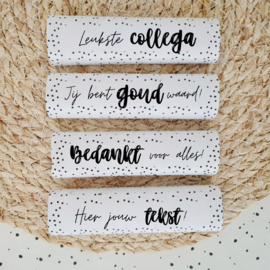 Leukste collega
Jij bent goud waard!
Bedankt voor alles!
Hier jouw tekst!